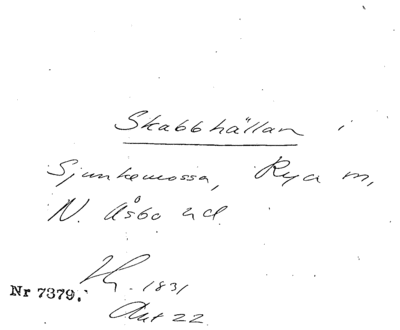 Skabbhällan i
Sjunkemossa, Rya m,
N. Åsbo hd.
1831
Nr 7379.
Akt 22